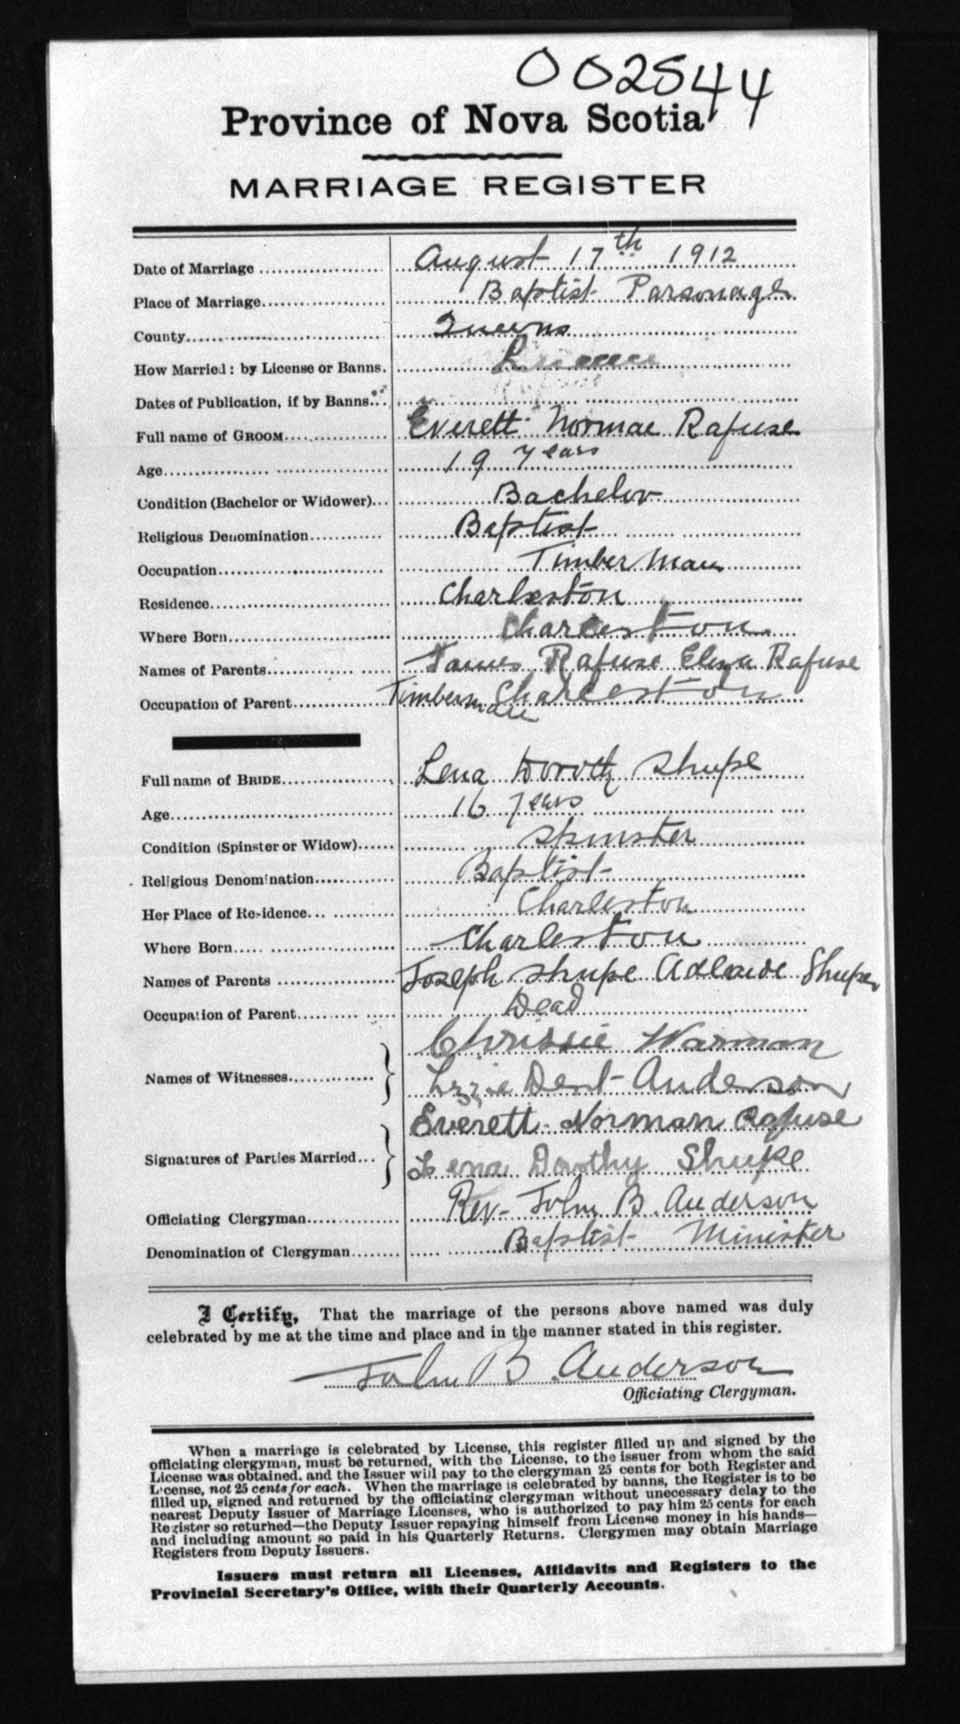 002544
Province of Nova Scotia
MARRIAGE REGISTER
Date of Marriage August 17th 1912
Place of Marriage Baptist Parsonage
County Queens
How Married: by License or Banns. License
Dates of Publication, if by Banns
Full name of GROOM Everett Norman Rafuse
Age 19 years
Condition (Bachelor or Widower) Bachelor
Religious Denomination Baptist
Occupation Timber Man
Residence Charleston
Where Born Charleston
Names of Parents James Rafuse Eliza Rafuse
Occupation of Parent Timberman Charleston
Full name of BRIDE Lena Doroth Shupe
Age 16 years
Condition (Spinster or Widow) Spinster
Religious Denomination Baptist
Her Place of Residence Charleston
Where Born Charleston
Names of Parents Joseph Shupe Adelaide Shupe
Occupation of Parent Dead
Names of Witnesses Chrissie Warman
Lizzie Dent Anderson
Signatures of Parties Married Everett Norman Rafuse
Lena Dorothy Shupe
Officiating Clergyman Rev. John B. Anderson
Denomination of Clergyman Baptist Minister
I Certify, That the marriage of the persons above named was duly
celebrated by me at the time and place and in the manner stated in this register.
John B. Anderson
Officiating Clergyman.
When a marriage is celebrated by License, this register filled up and signed by the
officiating clergyman, must be returned, with the License, to the issuer from whom the said
License was obtained, and the Issuer will pay to the clergyman 25 cents for both Register and
License, not 25 cents for each. When the marriage is celebrated by banns, the Register is to be
filled up, signed and returned by the officiating clergyman without unnecessary delay to the
nearest Deputy Issuer of Marriage Licenses, who is authorized to pay him 25 cents for each
Register so returned—the Deputy Issuer repaying himself from License money in his hands—
and including amount so paid in his Quarterly Returns. Clergymen may obtain Marriage
Registers from Deputy Issuers.
Issuers must return all Licenses, Affidavits and Registers to the
Provincial Secretary's Office, with their Quarterly Accounts.